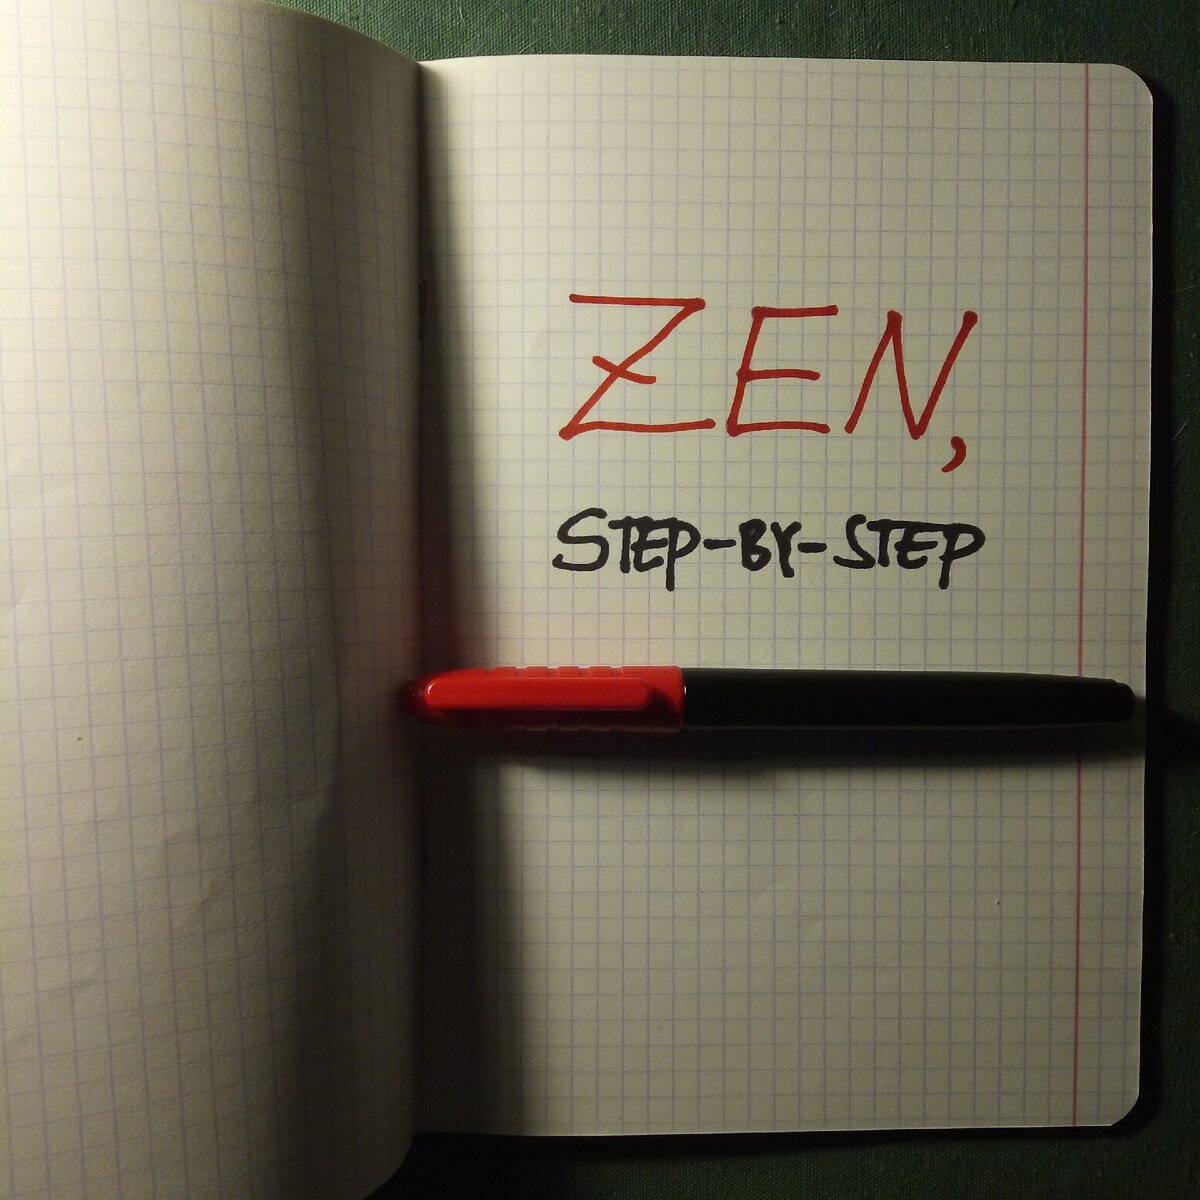 ZEN,
STEP-BY-STEP